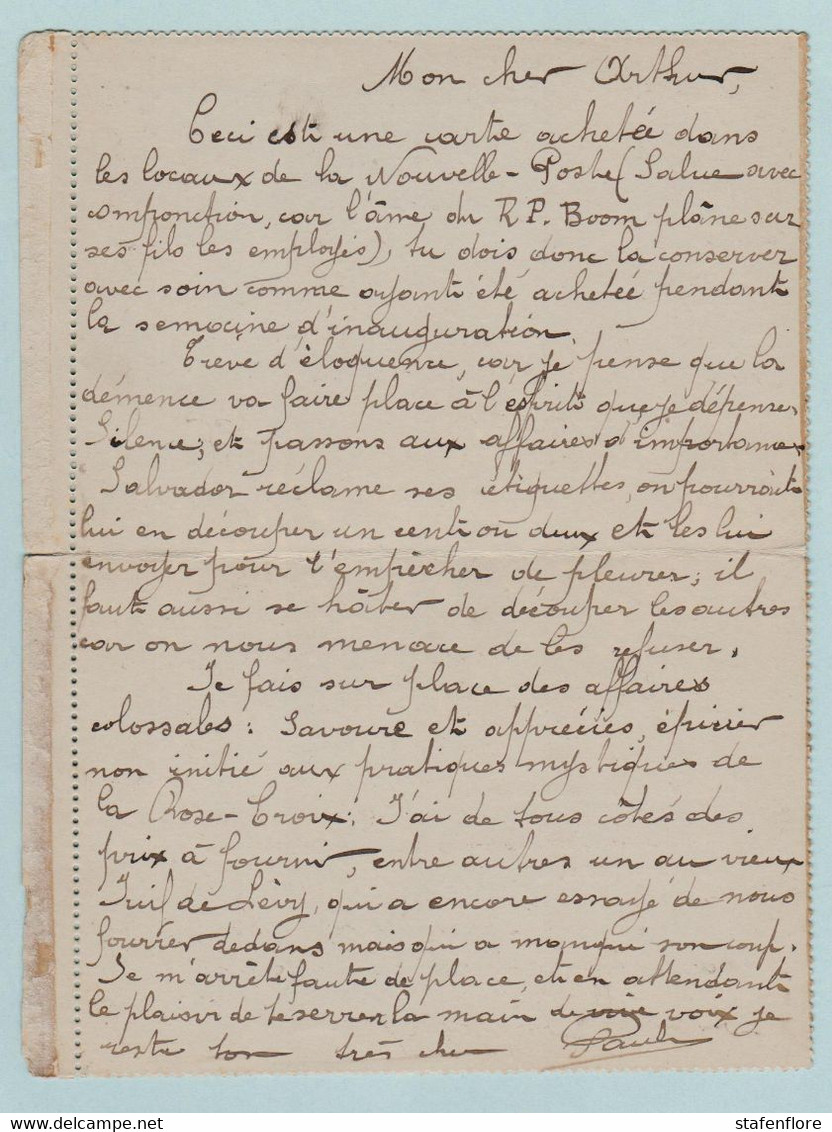 Mon cher Arthur,
Ceci est une carte achetée dans
les locaux de la Nouvelle-Poste (Salue avec
componction, car l'âme du R.P. Boom plâne sur
ses fils les employés), tu dois donc la conserver
avec soin comme ayant été achetée pendant
la semaine d'inauguration.
Trève d'éloquence, car je pense que la
démence va faire place à l'esprit que je dépense.
Silence, et passons aux affaires d'importance
Salvador réclame ses étiquettes, on pourrait
lui en découper un cent ou deux et les lui
envoyer pour l'empêcher de pleurer; il
faut aussi se hâter de découper les autres
car on nous menace de les refuser.
Je fais sur place des affaires
colossales: Savoure et apprécies, épicier
non initié aux pratiques mystiques de
la Rose-Croix: J'ai de tous côtés des
prix à fournir, entre autres un au vieux
Juif de Lévy, qui a encore essayé de nous
fourrer dedans mais qui a manqué son coup.
Je m'arrête faute de place, et en attendant
le plaisir de te serrer la main de vive voix je
reste ton très cher Paul
delcampe.net
stafenflore